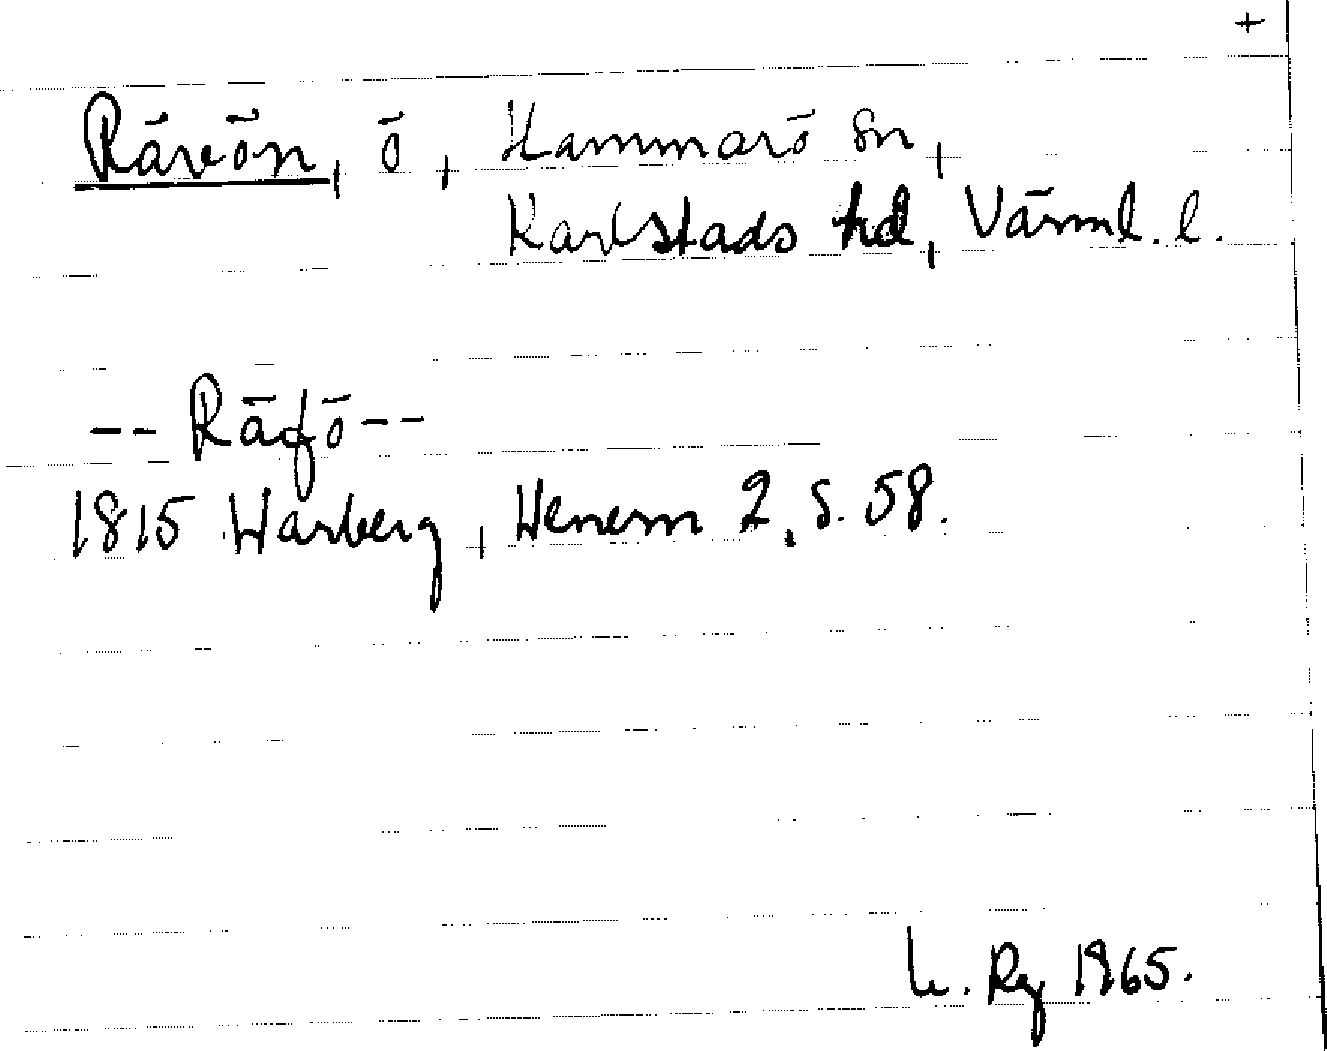 +
Rävön, ö, Hammarö sn,
Karlstads hd, Värml. l.
-- Räfö --
1815 Warberg, Wenern 2, s. 58.
Ry 1965.